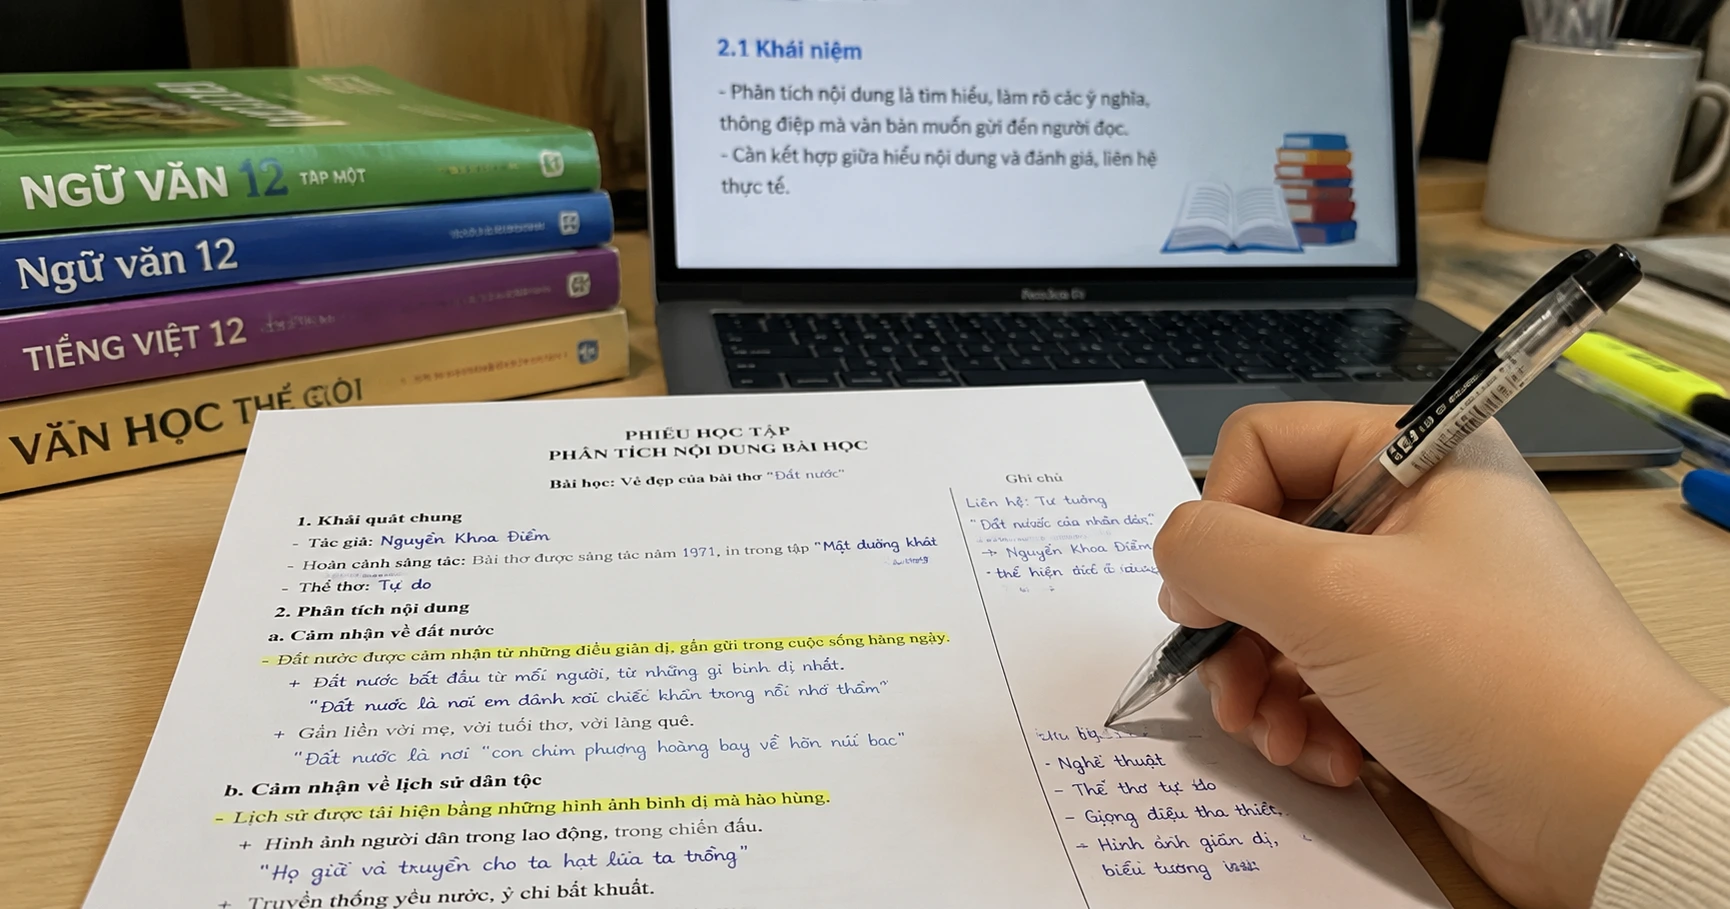 NGỮ VĂN 12 TẬP MỘT
Ngữ văn 12
TIẾNG VIỆT 12
VĂN HỌC THẾ GIỚI
2.1 Khái niệm
- Phân tích nội dung là tìm hiểu, làm rõ các ý nghĩa,
thông điệp mà văn bản muốn gửi đến người đọc.
- Cần kết hợp giữa hiểu nội dung và đánh giá, liên hệ
thực tế.
PHIẾU HỌC TẬP
PHÂN TÍCH NỘI DUNG BÀI HỌC
Bài học: Vẻ đẹp của bài thơ "Đất nước"
1. Khái quát chung
- Tác giả: Nguyễn Khoa Điềm
- Hoàn cảnh sáng tác: Bài thơ được sáng tác năm 1971, in trong tập "Mật đường khát
- Thể thơ: Tự do
2. Phân tích nội dung
a. Cảm nhận về đất nước
- Đất nước được cảm nhận từ những điều giản dị, gần gũi trong cuộc sống hàng ngày.
+ Đất nước bắt đầu từ mỗi người, từ những gì bình dị nhất.
"Đất nước là nơi em đánh xơi chiếc khăn trong nỗi nhớ thầm"
+ Gắn liền với mẹ, với tuổi thơ, với làng quê.
"Đất nước là nơi "con chim phượng hoàng bay về hòn núi bạc"
b. Cảm nhận về lịch sử dân tộc
- Lịch sử được tái hiện bằng những hình ảnh bình dị mà hào hùng.
+ Hình ảnh người dân trong lao động, trong chiến đấu.
"Họ giữ và truyền cho ta hạt lúa ta trồng"
+ Truyền thống yêu nước, ý chí bất khuất.
Ghi chú
Liên hệ: Tư tưởng
"Đất nước của nhân dân"
→ Nguyễn Khoa Điềm
- thể hiện
- Nghệ thuật
- Thể thơ tự do
- Giọng điệu tha thiết,
- Hình ảnh giản dị,
biểu tượng